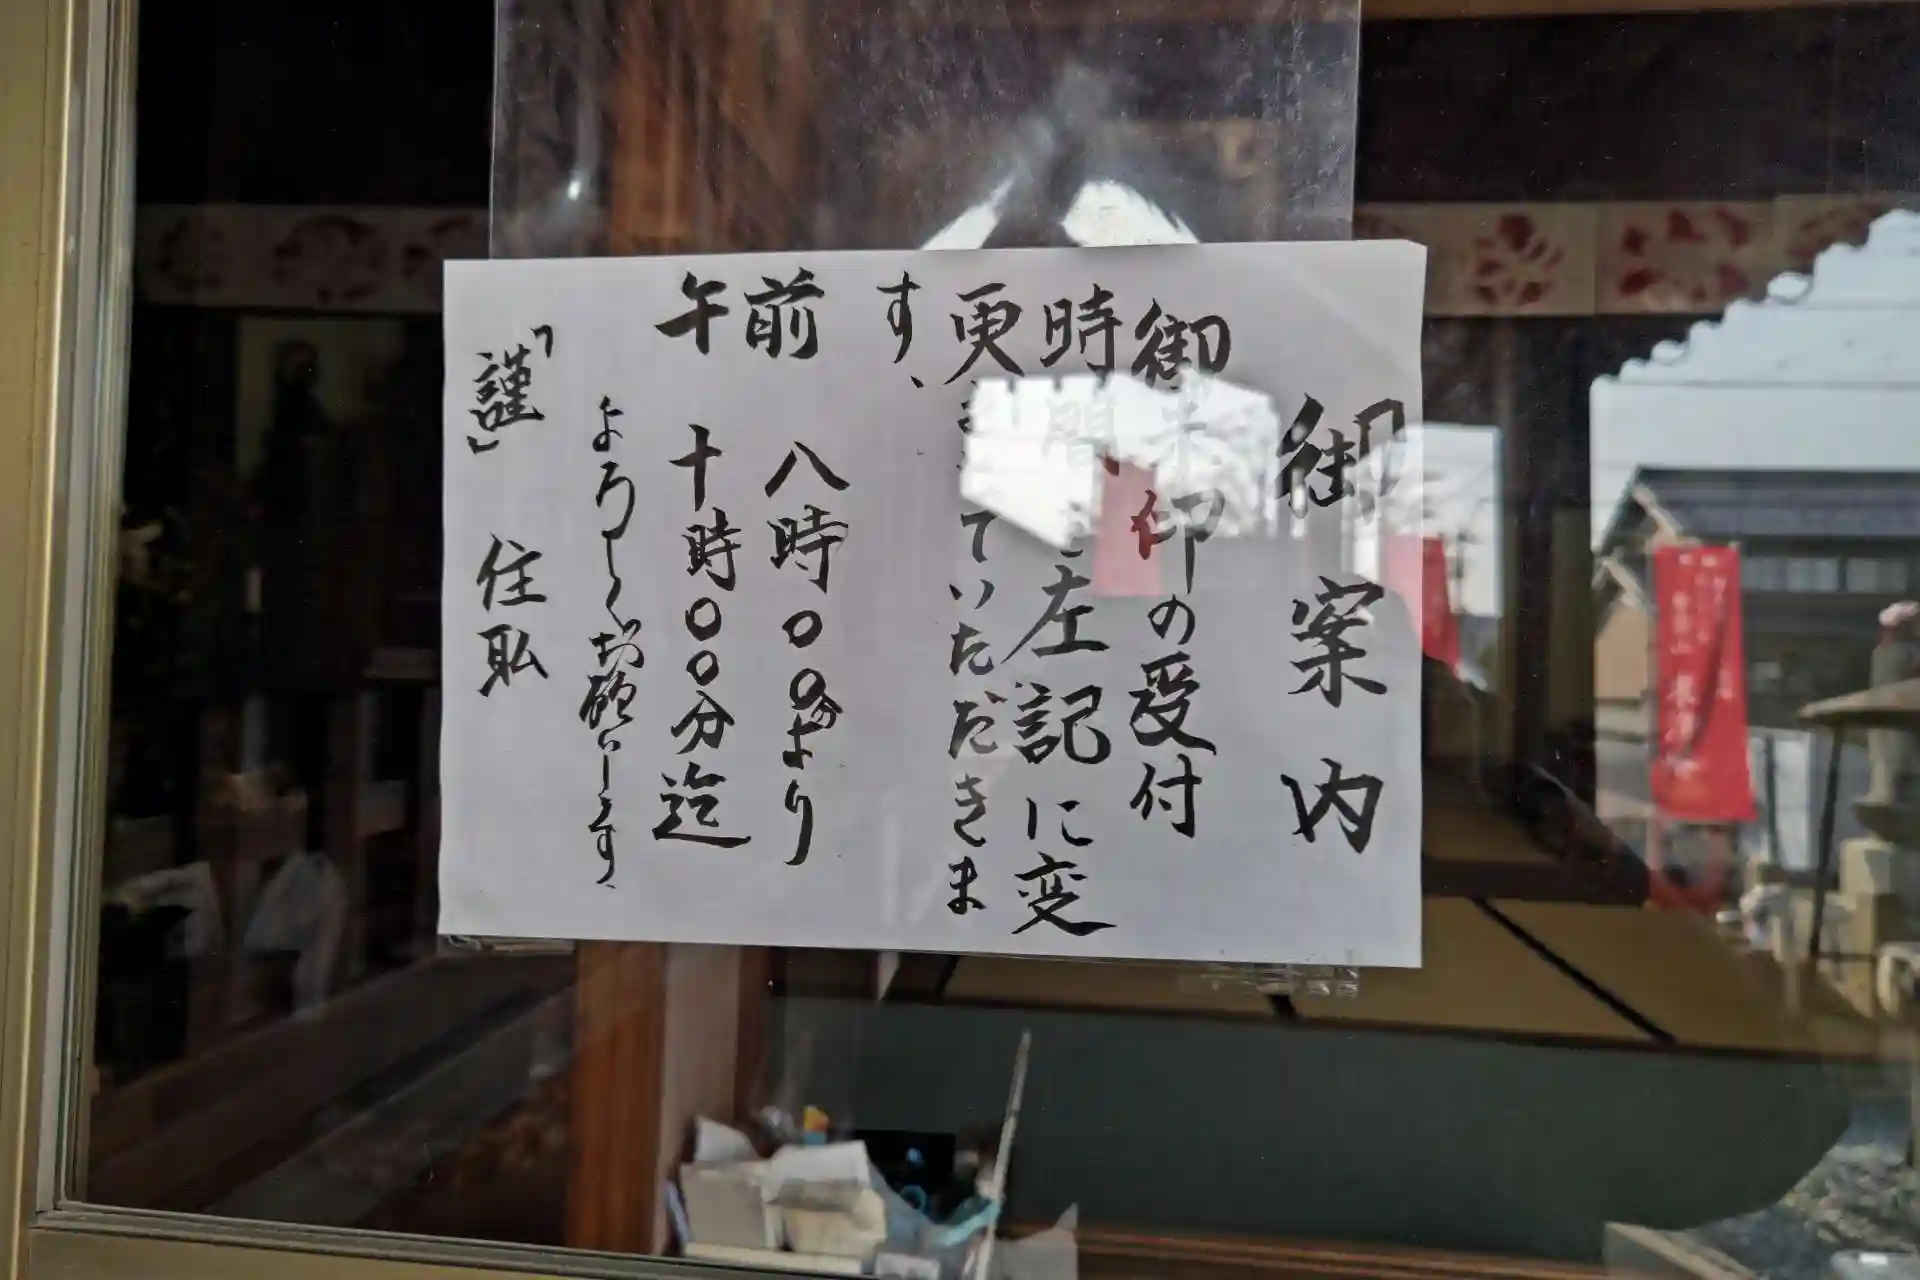 御案内
御朱印の受付
時間を左記に変
更させていただきま
す、
午前 八時〇〇分より
十時〇〇分迄
よろしくお願いします、
「謹」 住耺